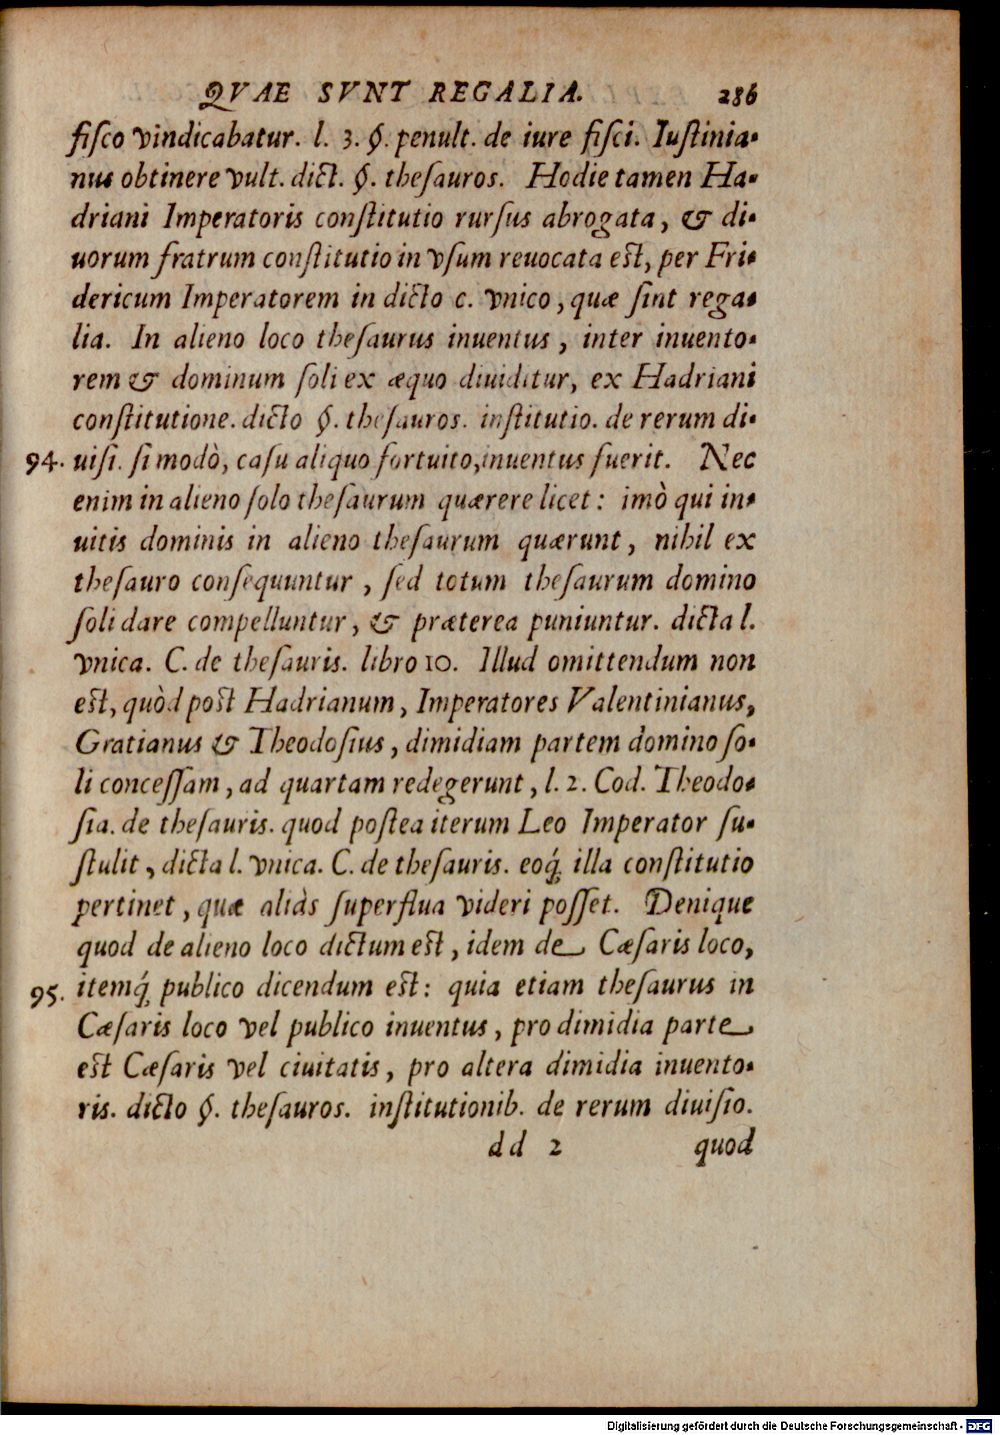 QVAE SVNT REGALIA. 286
fiſco vindicabatur. l. 3. §. penult. de iure fiſci. Iuſtinia-
nus obtinere vult. dict. §. theſauros. Hodie tamen Ha-
driani Imperatoris conſtitutio rurſus abrogata, & di-
uorum fratrum conſtitutio in vſum reuocata eſt, per Fri-
dericum Imperatorem in dicto c. vnico, quæ ſint rega-
lia. In alieno loco theſaurus inuentus, inter inuento-
rem & dominum ſoli ex æquo diuiditur, ex Hadriani
conſtitutione. dicto §. theſauros. inſtitutio. de rerum di-
94. uiſi. ſi modò, caſu aliquo fortuito, inuentus fuerit. Nec
enim in alieno ſolo theſaurum quærere licet: imò qui in-
uitis dominis in alieno theſaurum quærunt, nihil ex
theſauro conſequuntur, ſed totum theſaurum domino
ſoli dare compelluntur, & præterea puniuntur. dicta l.
vnica. C. de theſauris. libro 10. Illud omittendum non
eſt, quòd poſt Hadrianum, Imperatores Valentinianus,
Gratianus & Theodoſius, dimidiam partem domino ſo-
li conceſſam, ad quartam redegerunt, l. 2. Cod. Theodo-
ſia. de theſauris. quod poſtea iterum Leo Imperator ſu-
ſtulit, dicta l. vnica. C. de theſauris. eoq́; illa conſtitutio
pertinet, quæ aliàs ſuperflua videri poſſet. Denique
quod de alieno loco dictum eſt, idem de Cæſaris loco,
95. itemq́; publico dicendum eſt: quia etiam theſaurus in
Cæſaris loco vel publico inuentus, pro dimidia parte
eſt Cæſaris vel ciuitatis, pro altera dimidia inuento-
ris. dicto §. theſauros. inſtitutionib. de rerum diuiſio.
dd 2 quod
Digitalisierung gefördert durch die Deutsche Forschungsgemeinschaft - DFG